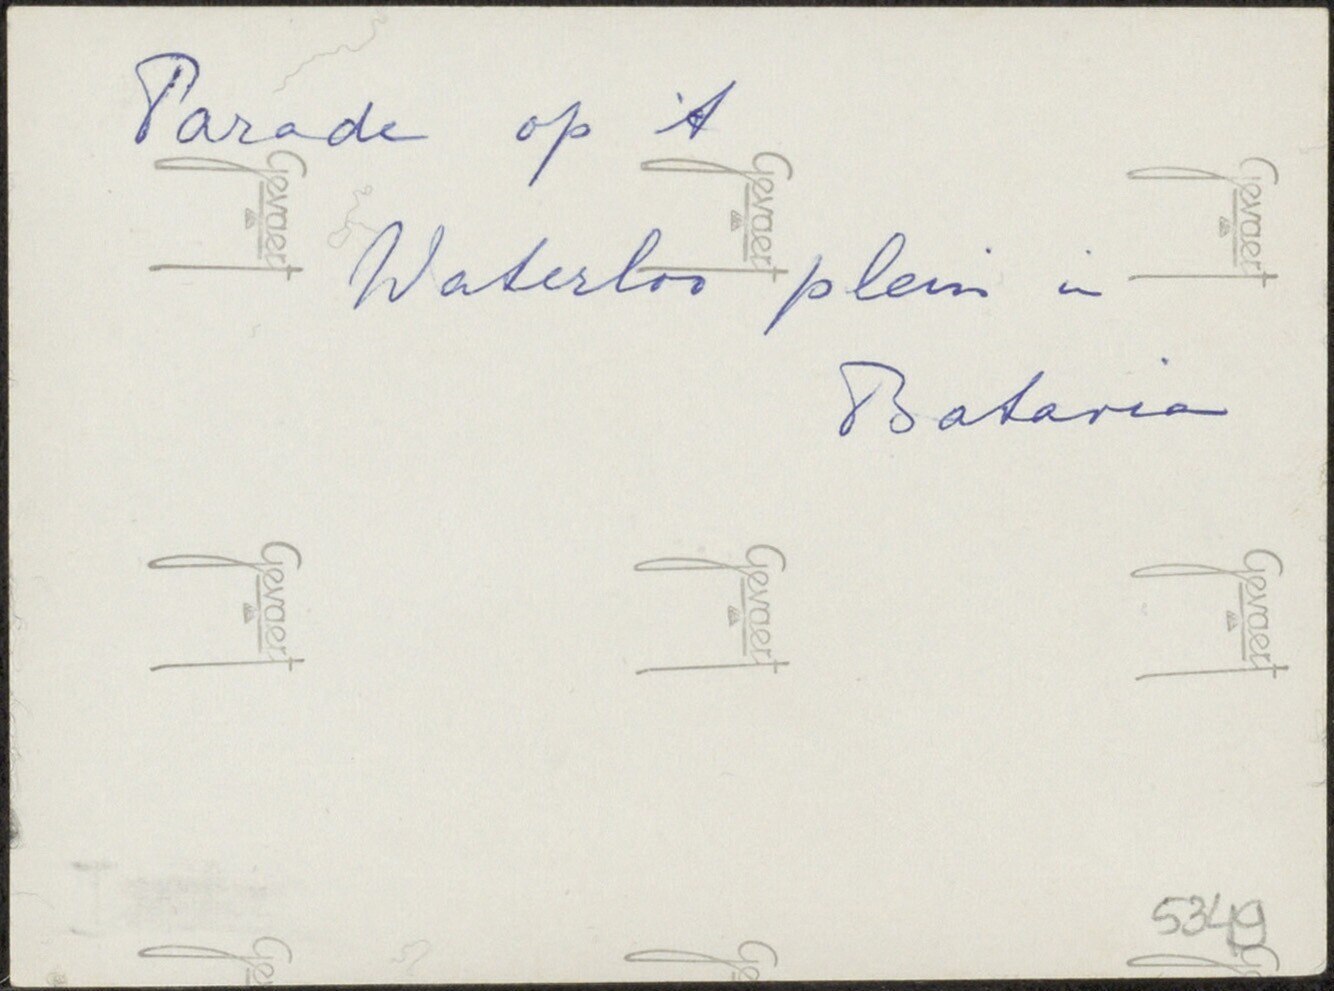 Parade op 't
Waterloo plein in
Batavia
Gevaert Gevaert Gevaert
Gevaert Gevaert Gevaert
5349